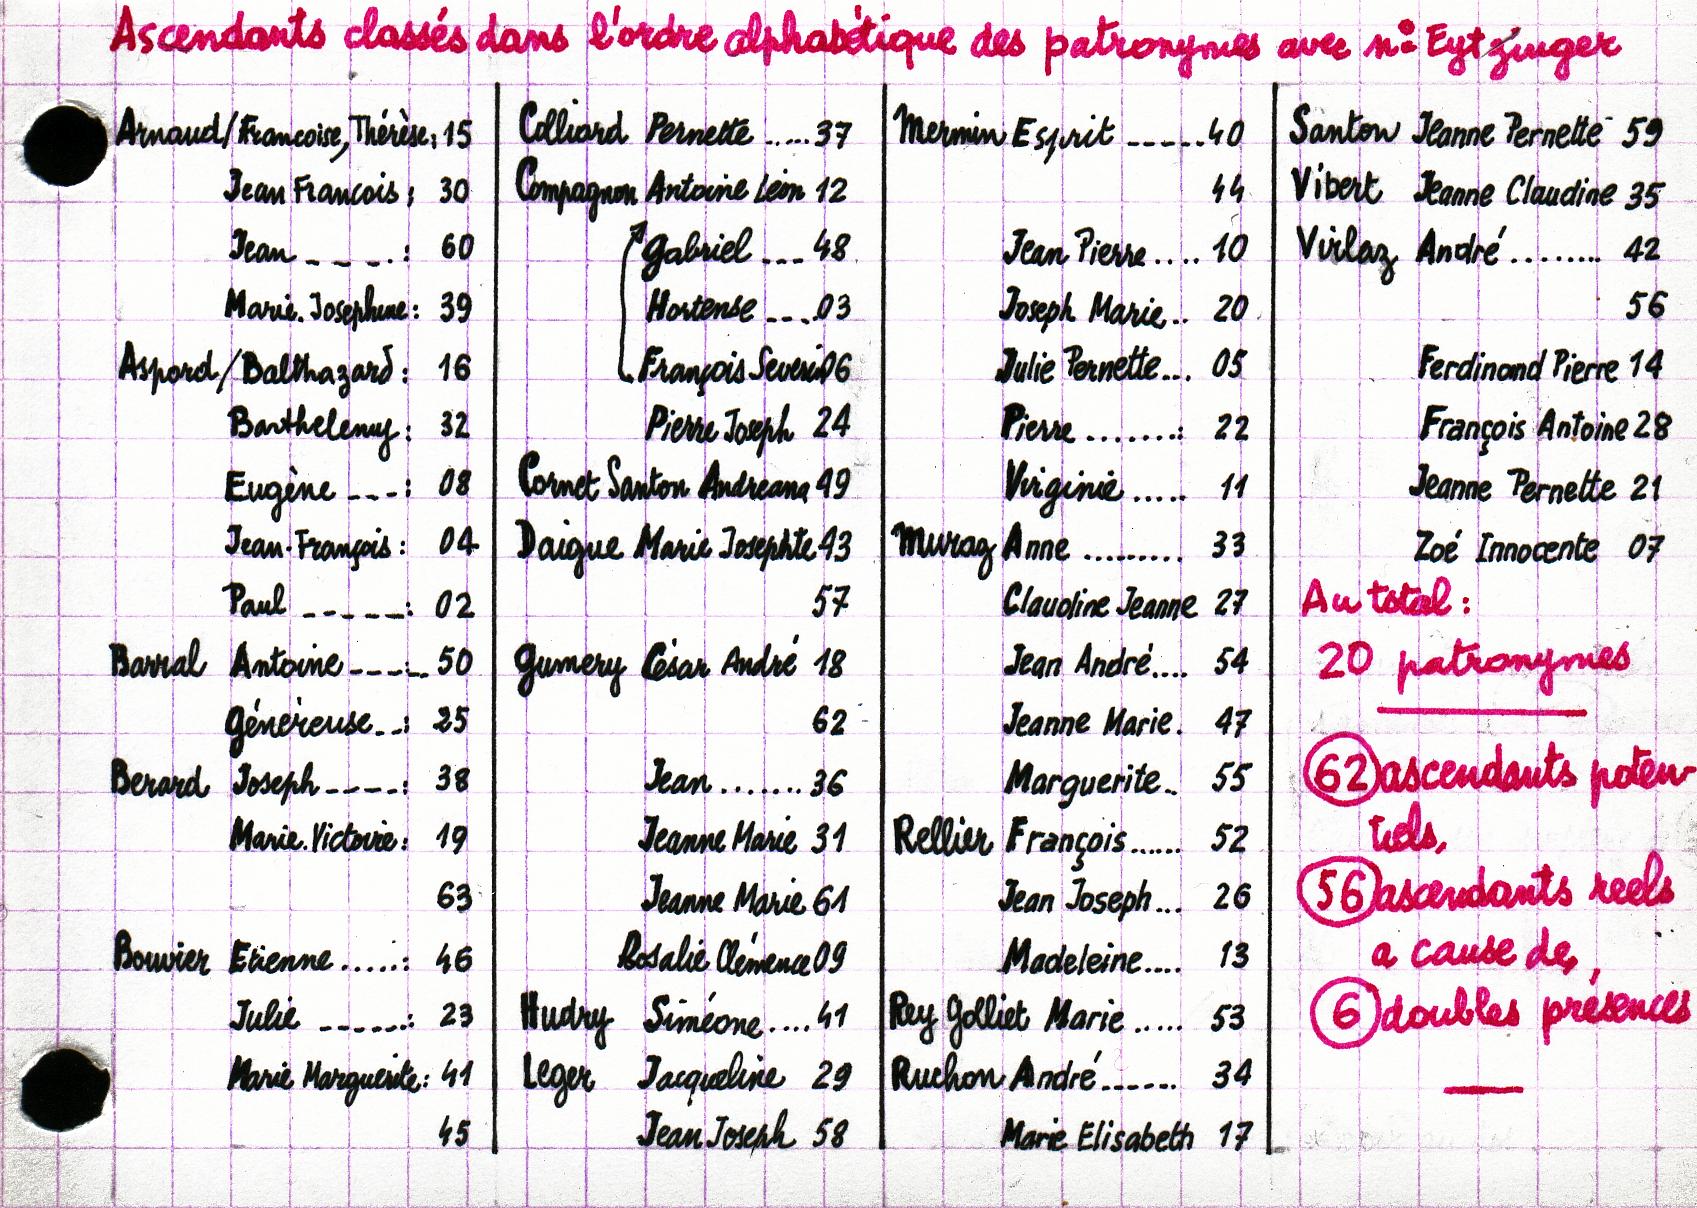 Ascendants classés dans l'ordre alphabétique des patronymes avec n° Eytzinger
Arnaud/Francoise, Thérèse: 15
Jean François: 30
Jean _ _ _ . : 60
Marie.Josephine: 39
Aspord/Balthazard: 16
Barthelemy: 32
Eugène _ _ _ : 08
Jean-François: 04
Paul _ _ _ _ _ : 02
Barral Antoine _ _ _ _ 50
Généreuse _ _ : 25
Berard Joseph _ _ _ _ : 38
Marie.Victoire: 19
63
Bouvier Etienne .....: 46
Julie _ _ _ _ _ _ : 23
Marie Marguerite: 41
45
Colliard Pernette ..... 37
Compagnon Antoine Léon 12
Gabriel _ _ _ 48
Hortense _ _ _ . 03
François Severin 06
Pierre Joseph 24
Cornet Santon Andreana 49
Daigue Marie Josephte 43
57
Gumery César André 18
62
Jean ....... 36
Jeanne Marie 31
Jeanne Marie 61
Rosalie Clémence 09
Hudry Siméone .... 41
Leger Jacqueline 29
Jean Joseph 58
Mermin Esprit _ _ _ _ _ 40
44
Jean Pierre .... 10
Joseph Marie .. 20
Julie Pernette ... 05
Pierre .......: 22
Virginie ..... 11
Muraz Anne ......... 33
Claudine Jeanne 27
Jean André .... 54
Jeanne Marie . 47
Marguerite .. 55
Rellier François ...... 52
Jean Joseph ... 26
Madeleine .... 13
Rey Golliet Marie ..... 53
Ruchon André ...... 34
Marie Elisabeth 17
Santon Jeanne Pernette 59
Vibert Jeanne Claudine 35
Virlaz André ........ 42
56
Ferdinand Pierre 14
François Antoine 28
Jeanne Pernette 21
Zoé Innocente 07
Au total:
20 patronymes
62 ascendants poten-
tiels,
56 ascendants reels
a cause de,
6 doubles présences